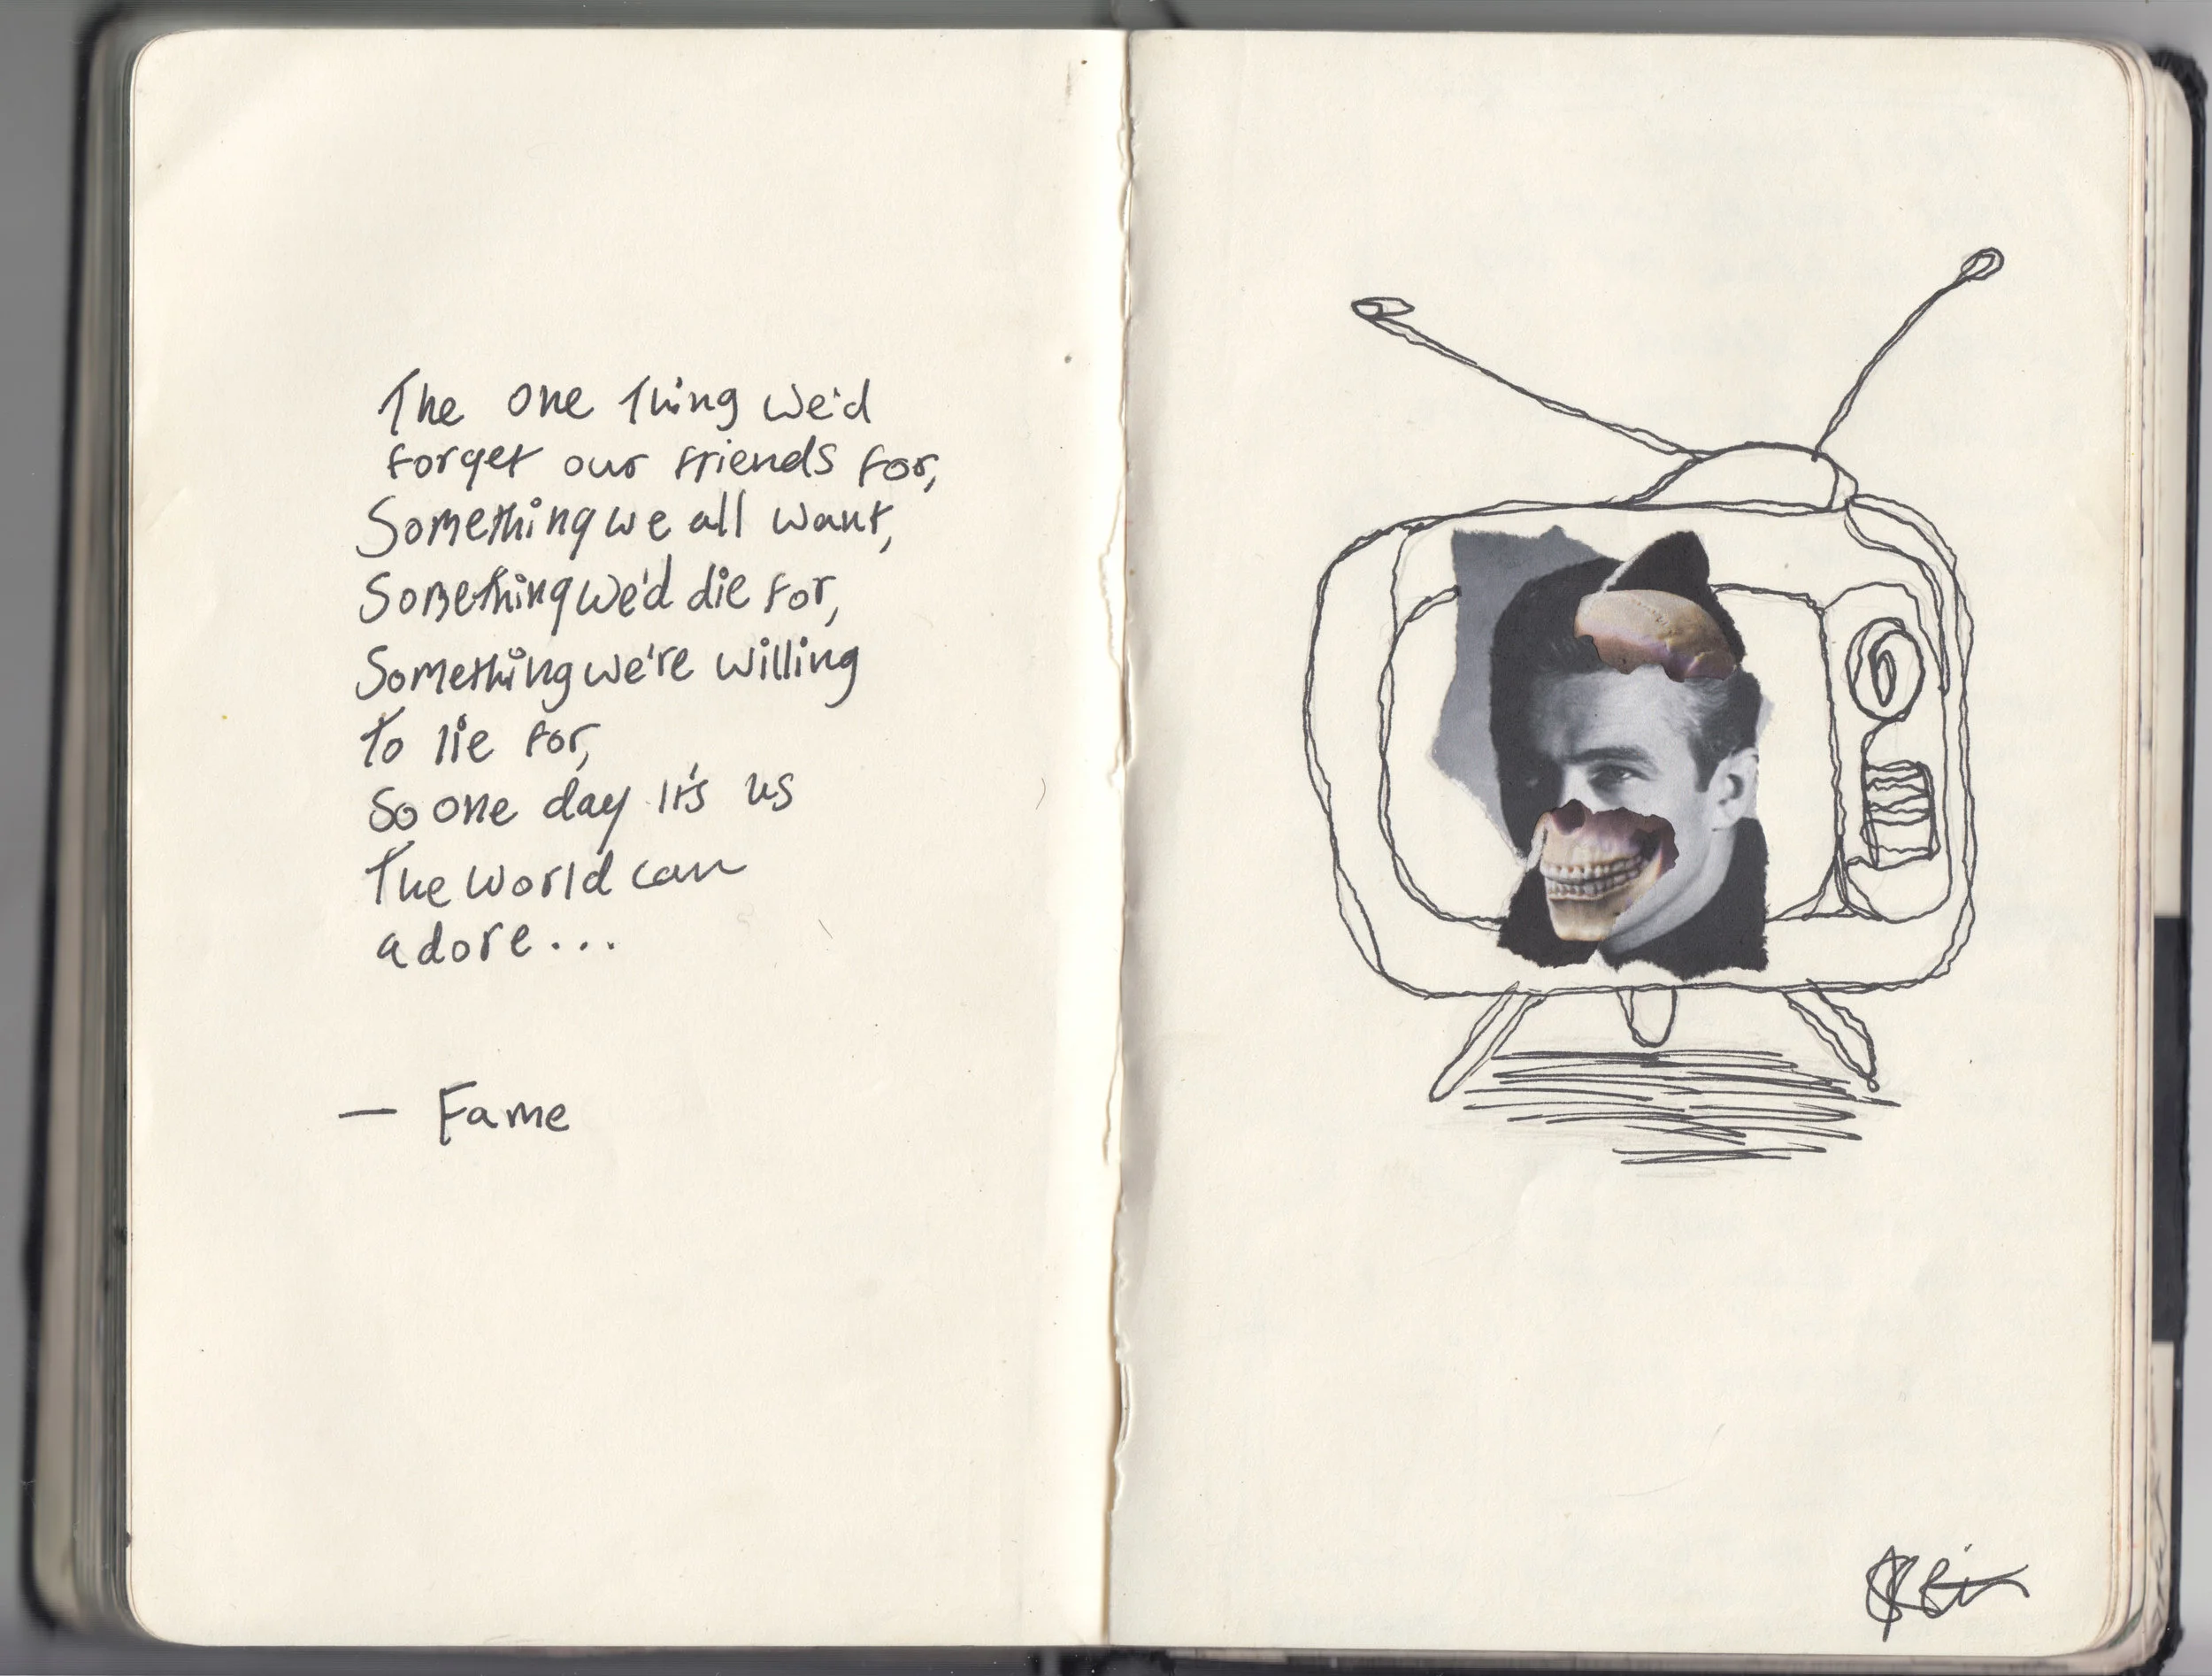 The one thing we'd
forget our friends for,
Something we all want,
Something we'd die for,
Something we're willing
to lie for,
So one day it's us
the world can
adore...
— Fame